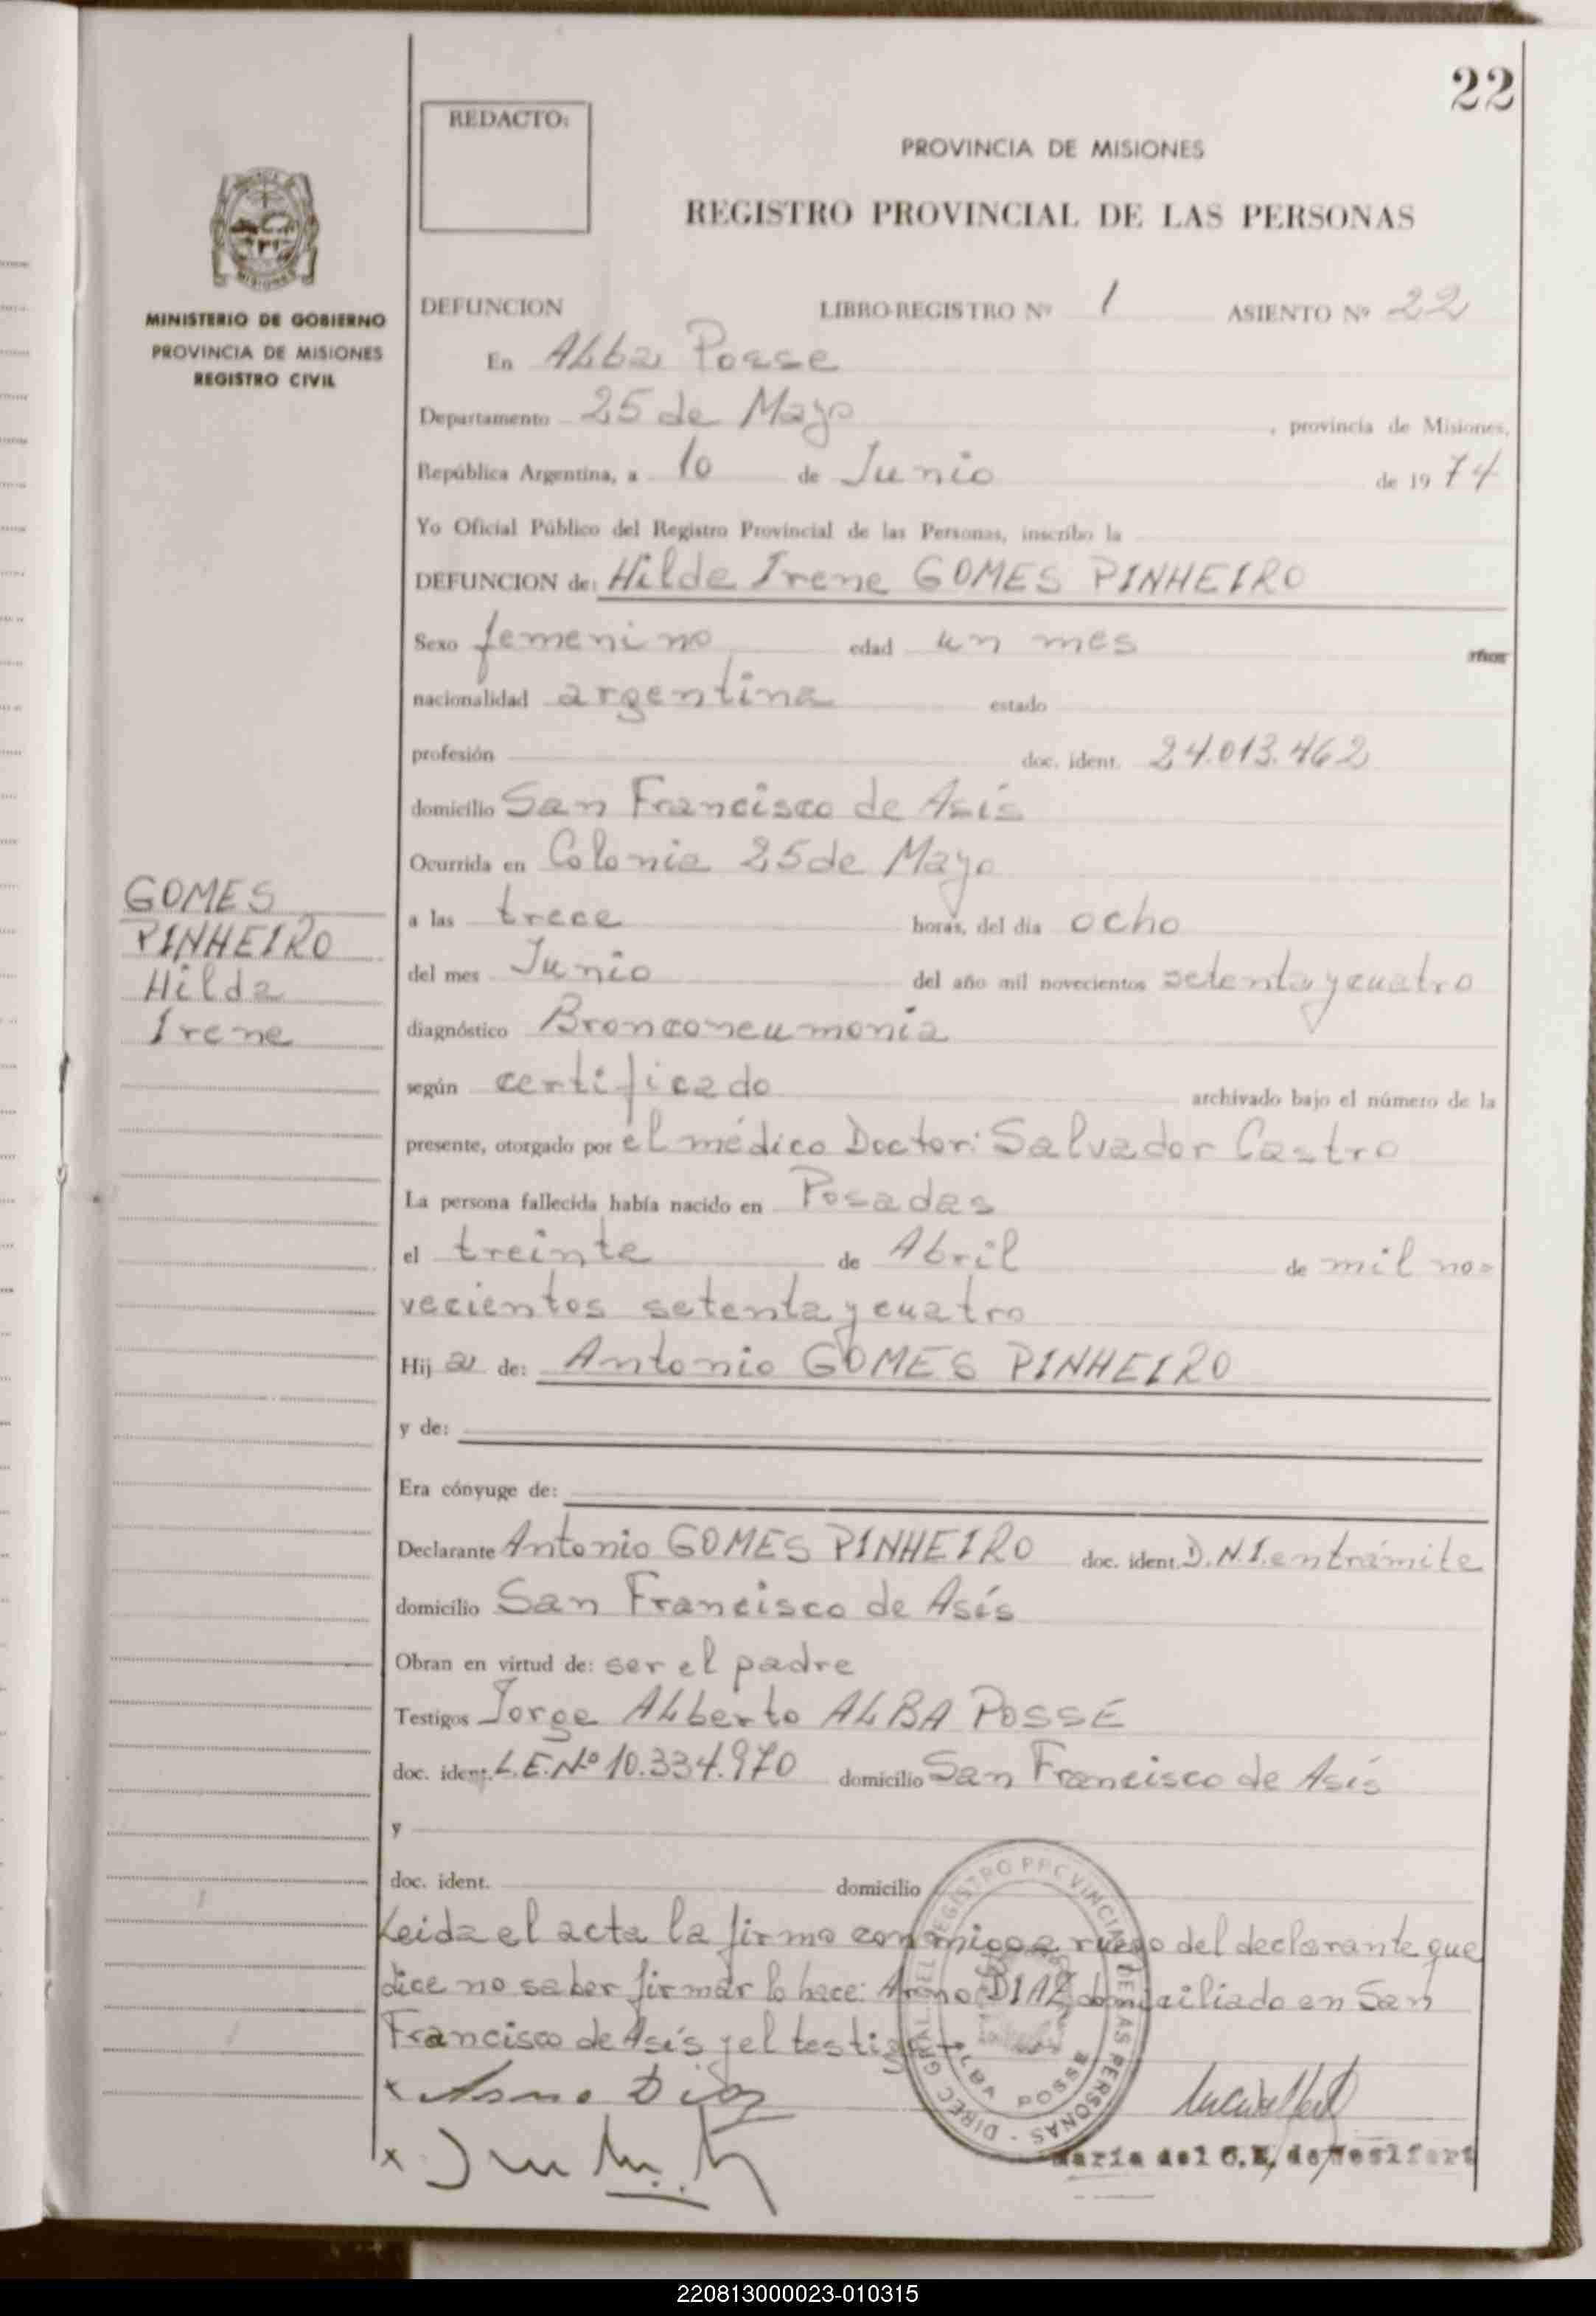 22
REDACTO:
PROVINCIA DE MISIONES
REGISTRO PROVINCIAL DE LAS PERSONAS
MISIONES
MINISTERIO DE GOBIERNO
PROVINCIA DE MISIONES
REGISTRO CIVIL
DEFUNCION LIBRO-REGISTRO Nº 1 ASIENTO Nº 22
En Alba Posse
Departamento 25 de Mayo , provincia de Misiones,
República Argentina, a 10 de Junio de 1974
Yo Oficial Público del Registro Provincial de las Personas, inscribo la
DEFUNCION de: Hilda Irene GOMES PINHEIRO
Sexo femenino edad un mes años
nacionalidad argentina estado
profesión doc. ident. 24.013.462
domicilio San Francisco de Asís
Ocurrida en Colonia 25 de Mayo
a las trece horas, del día ocho
del mes Junio del año mil novecientos setenta y cuatro
diagnóstico Bronconeumonia
según certificado archivado bajo el número de la
presente, otorgado por el médico Doctor: Salvador Castro
La persona fallecida había nacido en Posadas
el treinta de Abril de mil no=
vecientos setenta y cuatro
Hija de: Antonio GOMES PINHEIRO
y de:
Era cónyuge de:
Declarante Antonio GOMES PINHEIRO doc. ident. D.N.I. en trámite
domicilio San Francisco de Asís
Obran en virtud de: ser el padre
Testigos Jorge Alberto ALBA POSSE
doc. ident. L.E.Nº 10.334.970 domicilio San Francisco de Asís
y
doc. ident. domicilio
Leida el acta la firma conmigo a ruego del declarante que
dice no saber firmar lo hace: Arno DIAZ domiciliado en San
Francisco de Asís y el testigo
GOMES
PINHEIRO
Hilda
Irene
DIREC. GRAL. DEL REGISTRO PROVINCIAL DE LAS PERSONAS -
ALBA POSSE
x Arno Diaz
x
María del C.
220813000023-010315